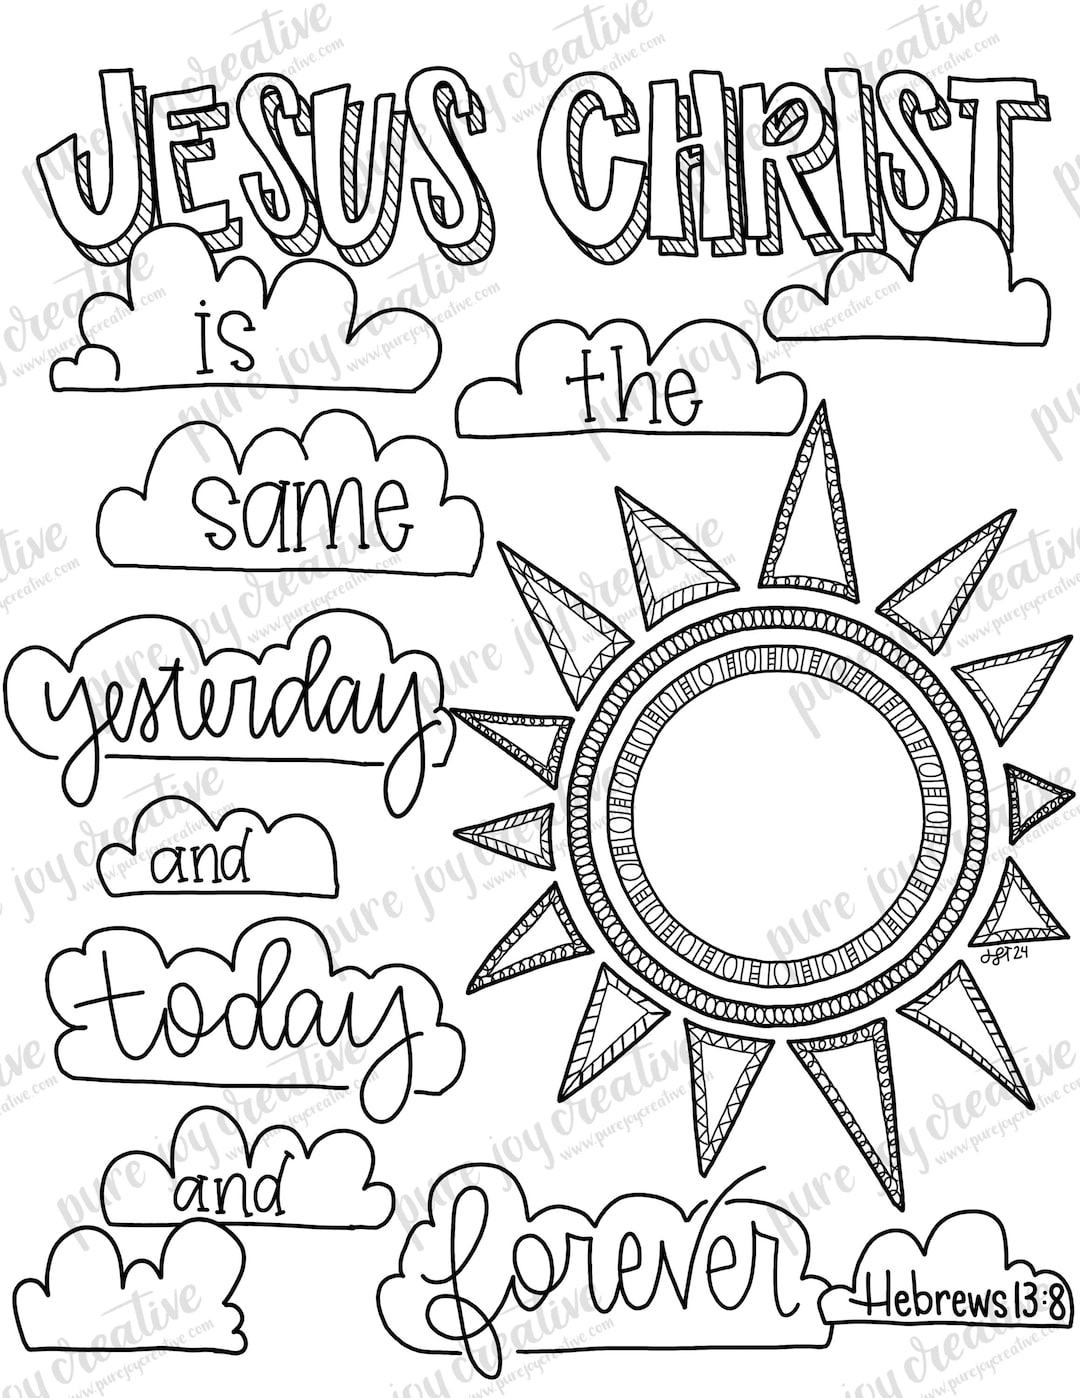 JESUS CHRIST
is
the
same
yesterday
and
today
and
forever
Hebrews 13:8
pure joy creative
www.purejoycreative.com